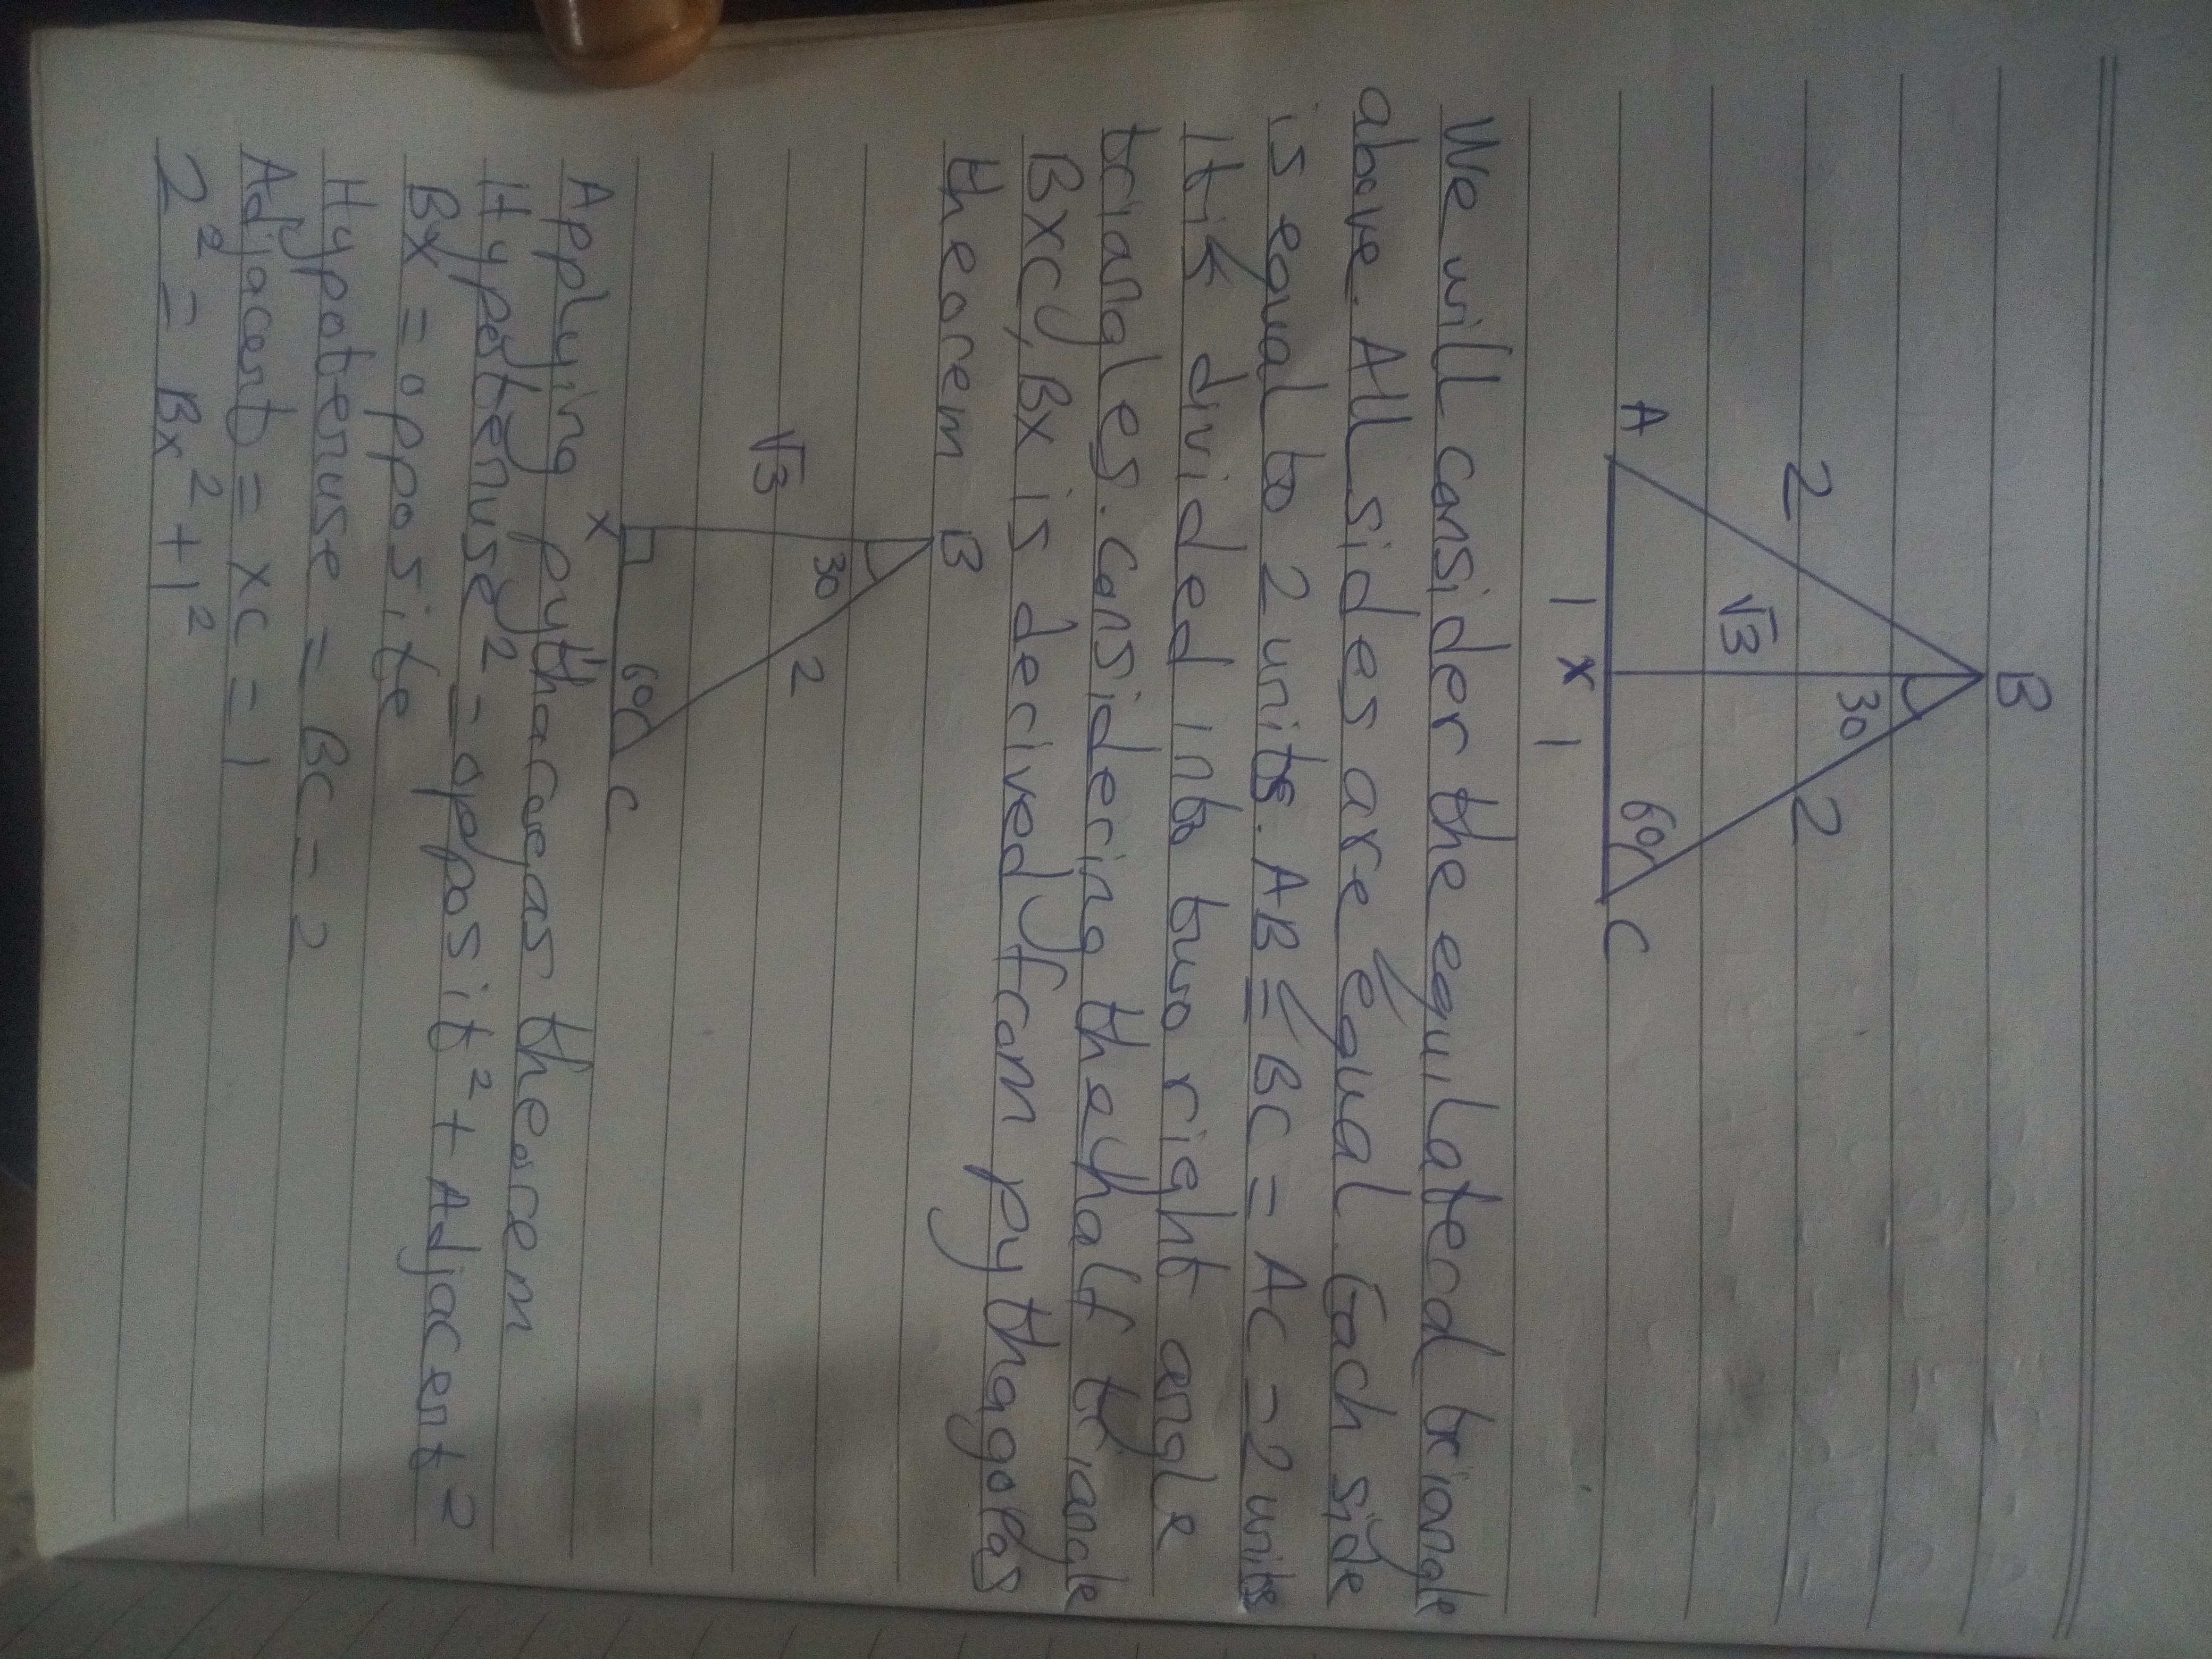 B
2
2
30
√3
60
A
C
1 x 1
We will consider the equilaterd triangle
above. All sides are equal. Each side
is equal to 2 units. AB = BC = AC = 2 units
It is divided into two right angle
triangles. Considering the half triangle
BXC, Bx is derived from pythagoras
theorem
B
30
√3
2
60
x
C
Applying pythacoegas theorem
Hypotenuse² = opposit² + Adjacent²
Bx = opposite
Hypotenuse = BC = 2
Adjacent = xc = 1
2² = Bx² + 1²